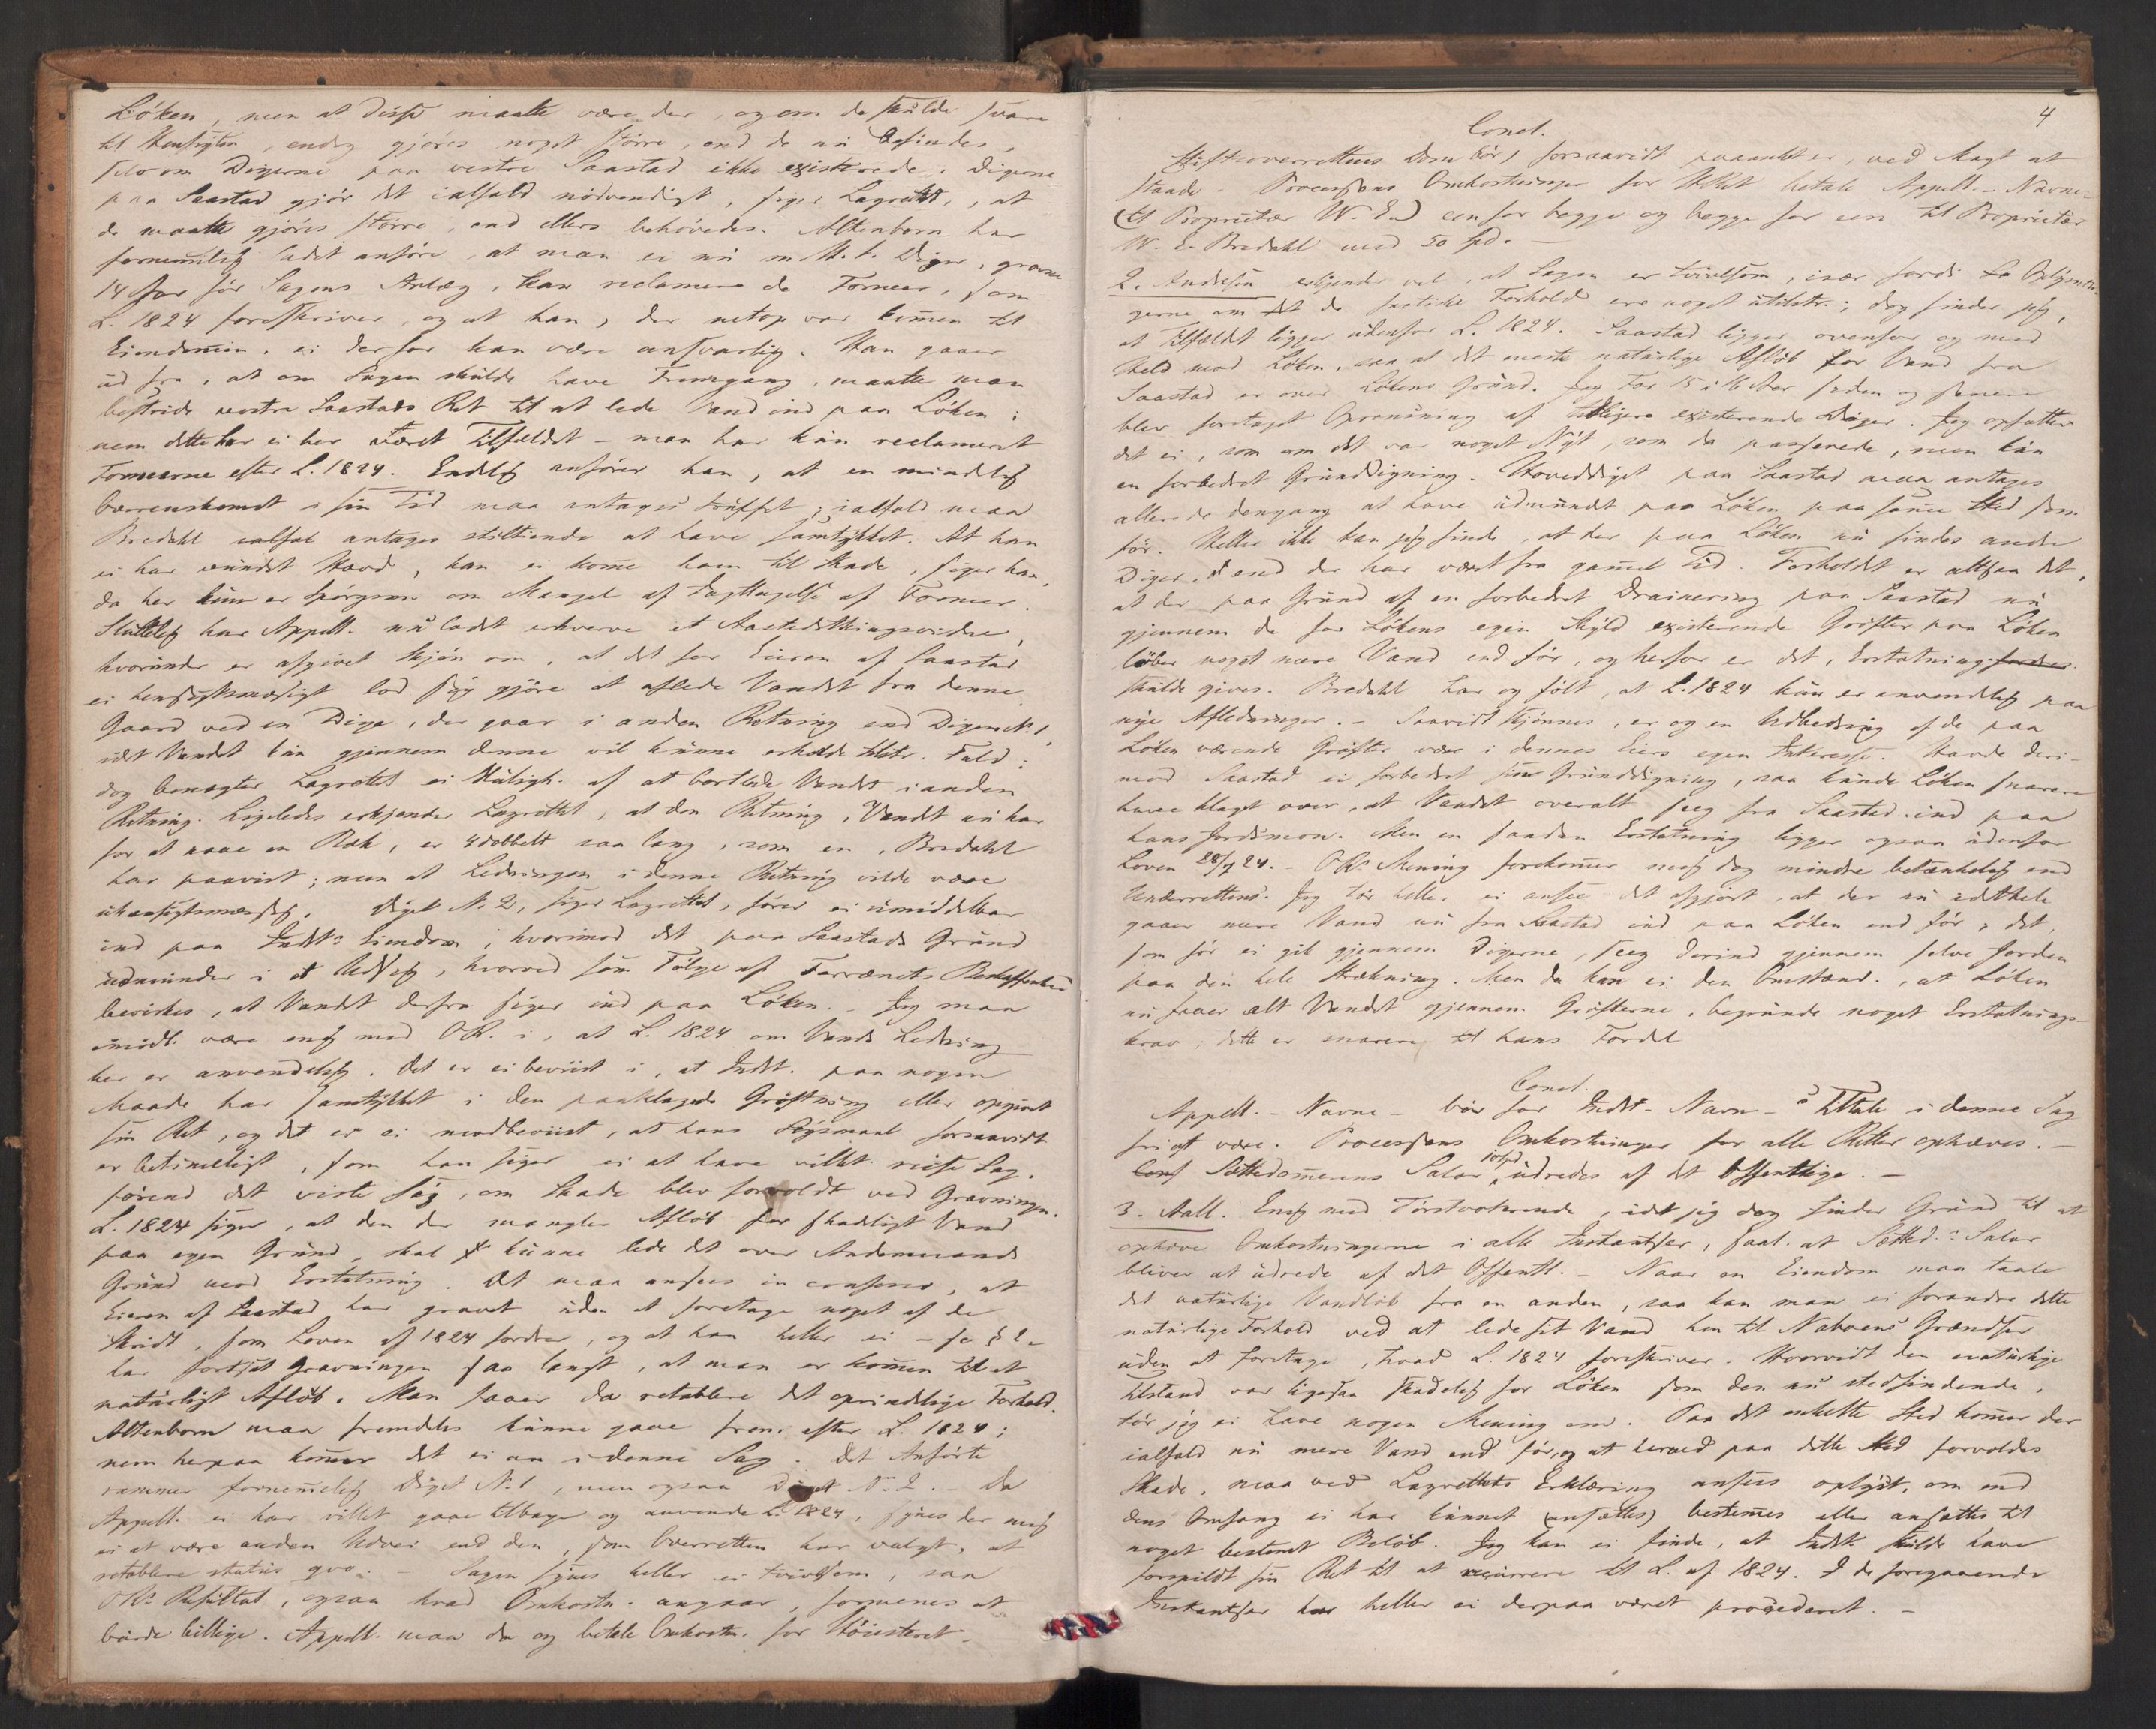 Löken, men at disse maatte være der, og om de skulde svare
til Hensigten, endog gjöres noget större, end de nu befindes,
selv om Digerne paa vestre Saastad ikke existerede. Digerne
paa Saastad gjör det ialfald nödvendigt, siger Lagrettet, at
de maatte gjöres större, end ellers behövedes. Altenborn har
fornemmelig ladet anföre, at man ei nu m. H. t. Diger, gravne
14 Aar för Sagens Anlæg, kan reclamere de Former, som
L. 1824 foreskriver, og at han, der netop var kommen til
Eiendommen, ei derfor kan være ansvarlig. Han gaaer
ud fra, at om Sagen skulde have Fremgang, maatte man
bestride vestre Saastads Ret til at lede Vand ind paa Löken;
men dette har ei her været Tilfældet – man har kun reclameret
Formerne efter L. 1824. Endelig anförer han, at en mindelig
Overenskomst i sin Tid maa antages truffet; ialfald maa
Bredahl antages stiltiende at have samtykket. At han
ei har vundet Hævd, kan ei komme ham til Skade, siger han,
da her kun er Spörgsm. om Mangel af Iagttagelse af Former.
Sluttelig har Appell. nu ladet erhverve et Aastedsthingsvidne,
hvorunder er afgivet Skjön om, at det for Eieren af Saastad
ei hensigtsmæssigt lod sig gjöre at aflede Vandet fra denne
Gaard ved en Dige, der gaar i anden Retning end Digen No 1,
idet Vandet kun gjennem denne vil kunne erholde tilstr. Fald;
dog benægter Lagrettet ei Muligh. af at bortlede Vandet i anden
Retning. Ligeledes erkjender Lagrettet, at den Retning, Vandet nu har
for at naae en Bæk, er 4 dobbelt saa lang, som en, Bredahl
har paavist; men at Ledningen i denne Retning vilde være
uhensigtsmæssig. Diget No 2, siger Lagrettet, förer ei umiddelbar
ind paa Indst.s Eiendom, hvorimod det paa Saastads Grund
udmunder i et, hvorved som Fölge af Terrænets Beskaffenhed
bevirkes, at Vandet derfra siger ind paa Löken. – Jeg maa
imidl. være enig med OR. i, at L. 1824 om Vands Ledning
her er anvendelig. Det er ei beviist, at Indst. paa nogen
Maade har samtykket i den paaklagede Gröftning eller opgivet
sin Ret, og det er ei modbeviist, at hans Sögsmaal forsaavidt
er betimeligt, som han siger ei at have villet reise Sag,
förend det viste sig, om Skade blev forvoldt ved Gravningen.
L. 1824 siger, at den der mangler Aflöb for skadeligt Vand
paa egen Grund, skal kunne lede det over Andenmands
Grund mod Erstatning. Det maa ansees in confesso, at
Eieren af Saastad har gravet uden at foretage noget af de
Skridt, som Loven af 1824 fordrer, og at han heller ei – se § 2 –
har fortsat Gravningen saa langt, at man er kommen til et
naturligt Aflöb. Man faaer da retablere det oprindelige Forhold.
Altenborn maa fremdeles kunne gaae frem efter L. 1824;
men herpaa kommer det ei an i denne Sag. Det Anförte
rammer fornemmelig Diget No 1, men ogsaa Diget No 2. – Da
Appell. ei har villet gaae tilbage og anvende L. 1824, synes der mig
ei at være anden Udvei end den, som Overretten har valgt, at
retablere status qvo. – Sagen synes heller ei tvivlsom, saa
ORs Resultat, ogsaa hvad Omkostn. angaar, formenes at
burde billiges. Appell. maa da og betale Omkostn. for Höiesteret –
4
Concl.
Stiftsoverrettens Dom bör, forsaavidt paaanket er, ved Magt at
stande. Processens Omkostninger for HRet betale Appell. – Navne –
(til Proprietær W. E.) een for begge og begge for een til Proprietær
W. E. Bredahl med 50 Spd. –
2. Andresen erkjender vel, at Sagen er tvivlsom, især fordi Oplysnin-
gerne om de factiske Forhold ere noget utilstr.; dog finder jeg,
at Tilfældet ligger udenfor L. 1824. Saastad ligger ovenfor og med
Held mod Löken, saa at det meste naturlige Aflöb for Vand fra
Saastad er over Lökens Grund. For 15 à 16 Aar siden og senere
blev foretaget Oprensning af tidligere existerende Diger. Jeg opfatter
det ei, som om det var noget Nyt, som da passerede, men kun
en forbedret Grunddigning. Hoveddiget paa Saastad maa antages
allerede dengang at have udmundet paa Löken paa samme Sted som
för. Heller ikke kan jeg finde, at der paa Löken nu findes andre
Diger, end der har været fra gammel Tid. Forholdet er altsaa det,
at der paa Grund af en forbedret Drainering paa Saastad nu
gjennem de for Lökens egen Skyld existerende Gröfter paa Löken
löber noget mere Vand end för, og herfor er det, Erstatning
skulde gives. Bredahl har og fölt, at L. 1824 kun er anvendelig paa
nye Afledninger. – Saavidt skjönnes, er og en Udbedring af de paa
Löken værende Gröfter være i dennes Eiers egen Interesse. Havde deri-
mod Saastad ei forbedret sin Grunddigning, saa kunde Löken snarere
have klaget over, at Vandet overalt seeg fra Saastad ind paa
hans Jordsmon. Men en saadan Erstatning ligger ogsaa udenfor
Loven 28/7 24. – ORs Mening forekommer mig dog mindre betænkelig end
Underrettens. Jeg tör heller ei ansee det afgjort, at der nu idethele
gaaer mere Vand nu fra Saastad ind paa Löken end för; det,
som för ei gik gjennem Digerne, seeg derind gjennem selve Jorden
paa den hele Strækning. Men da kan ei den Omstænd., at Löken
nu faaer alt Vandet gjennem Gröfterne, begrunde noget Erstatnings-
krav; dette er snarere til hans Fordel
Concl.
Appell. – Navne – bör for Indst. – Navn – s Tiltale i denne Sag
fri at være. Processens Omkostninger for alle Retter ophæves. –
Sættedommerens Salar 10 Spd. udredes af det Offentlige. –
3. Aall. Enig med Förstvoterende, idet jeg dog finder Grund til at
ophæve Omkostningerne i alle Instantser, saal. at Sætted.s Salar
bliver at udrede af det Offentl. – Naar en Eiendom maa taale
det naturlige Vandlöb fra en anden, saa kan man ei forandre dette
naturlige Forhold ved at lede sit Vand hen til Naboens Grændser
uden at foretage, hvad L. 1824 foreskriver. Hvorvidt den naturlige
Tilstand var ligesaa skadelig for Löken som den nu stedfindende,
tör jeg ei have nogen Mening om. Paa det enkelte Sted kommer der
ialfald nu mere Vand end för, og at herved paa dette Sted forvoldes
Skade, maa ved Lagrettets Erklæring ansees oplyst, om end
dens Omfang ei har kunnet (ansættes) bestemmes eller ansættes til
noget bestemt Belöb. Jeg kan ei finde, at Indst. skulde have
forspildt sin Ret til at recurrere til L. af 1824. I de foregaaende
Instantser har heller ei derpaa været procederet. –